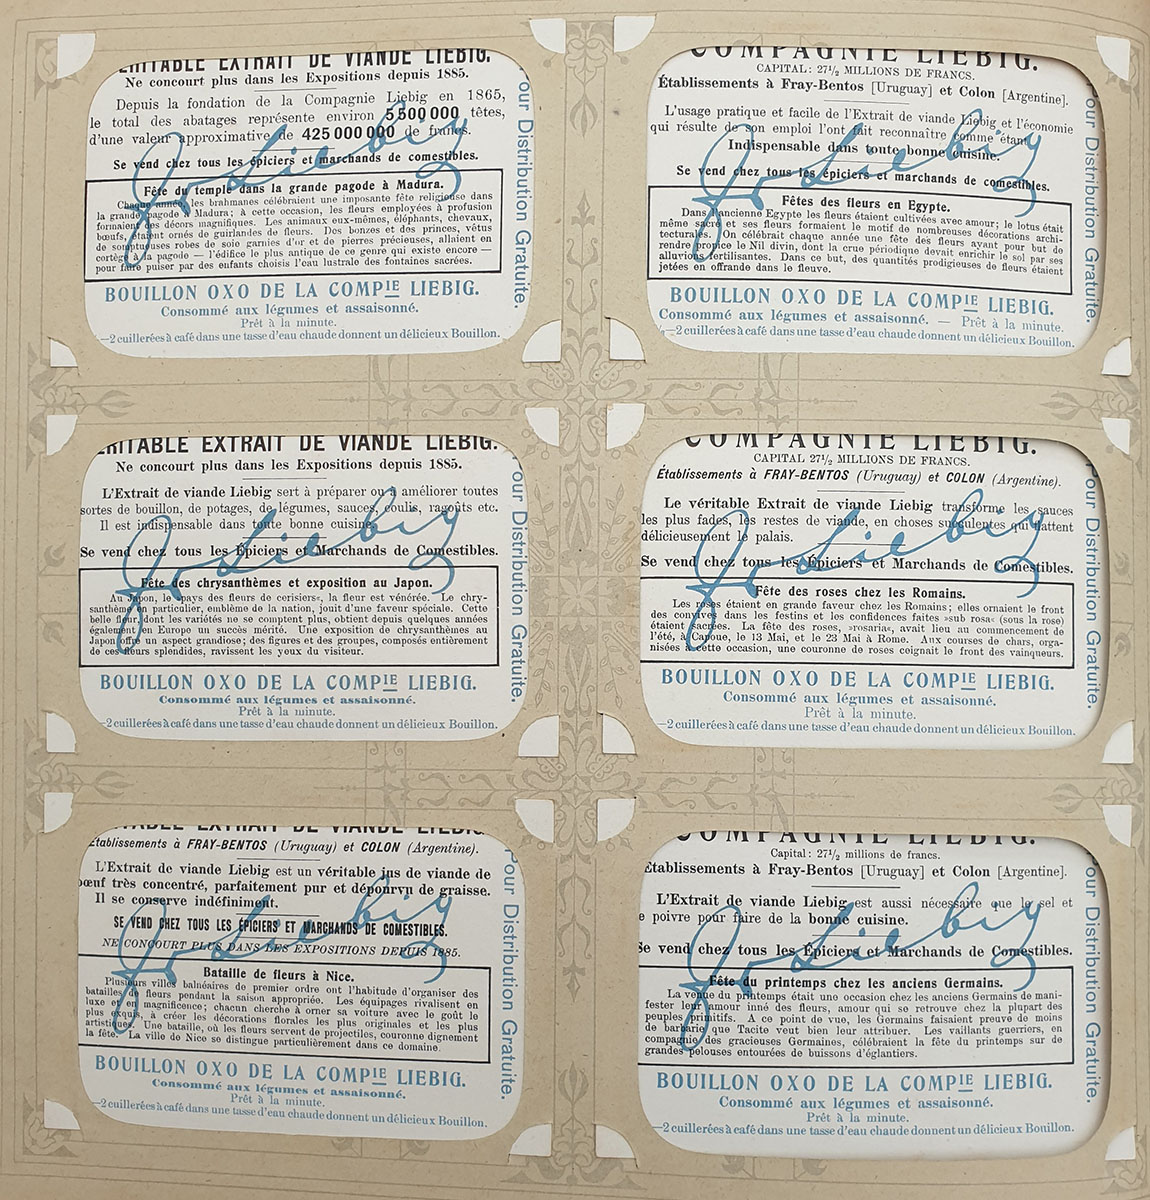 VÉRITABLE EXTRAIT DE VIANDE LIEBIG.
Ne concourt plus dans les Expositions depuis 1885.
Depuis la fondation de la Compagnie Liebig en 1865,
le total des abatages représente environ 5 500 000 têtes,
d'une valeur approximative de 425 000 000 de francs.
Se vend chez tous les épiciers et marchands de comestibles.
Fête du temple dans la grande pagode à Madura.
Chaque année, les brahmanes célébraient une imposante fête religieuse dans
la grande pagode à Madura; à cette occasion, les fleurs employées à profusion
formaient des décors magnifiques. Les animaux eux-mêmes, éléphants, chevaux,
bœufs, étaient ornés de guirlandes de fleurs. Des bonzes et des princes, vêtus
de somptueuses robes de soie garnies d'or et de pierres précieuses, allaient en
cortège à la pagode — l'édifice le plus antique de ce genre qui existe encore —
pour faire puiser par des enfants choisis l'eau lustrale des fontaines sacrées.
BOUILLON OXO DE LA COMPIE LIEBIG.
Consommé aux légumes et assaisonné.
Prêt à la minute.
—2 cuillerées à café dans une tasse d'eau chaude donnent un délicieux Bouillon.
Pour Distribution Gratuite.
J v Liebig
COMPAGNIE LIEBIG.
CAPITAL: 27½ MILLIONS DE FRANCS.
Établissements à Fray-Bentos [Uruguay] et Colon [Argentine].
L'usage pratique et facile de l'Extrait de viande Liebig et l'économie
qui résulte de son emploi l'ont fait reconnaître comme étant
Indispensable dans toute bonne cuisine.
Se vend chez tous les épiciers et marchands de comestibles.
Fêtes des fleurs en Egypte.
Dans l'ancienne Egypte les fleurs étaient cultivées avec amour; le lotus était
même sacré et ses fleurs formaient le motif de nombreuses décorations archi-
tecturales. On célébrait chaque année une fête des fleurs ayant pour but de
rendre propice le Nil divin, dont la crue périodique devait enrichir le sol par ses
alluvions fertilisantes. Dans ce but, des quantités prodigieuses de fleurs étaient
jetées en offrande dans le fleuve.
BOUILLON OXO DE LA COMPIE LIEBIG.
Consommé aux légumes et assaisonné. — Prêt à la minute.
—2 cuillerées à café dans une tasse d'eau chaude donnent un délicieux Bouillon.
Pour Distribution Gratuite.
J v Liebig
VÉRITABLE EXTRAIT DE VIANDE LIEBIG.
Ne concourt plus dans les Expositions depuis 1885.
L'Extrait de viande Liebig sert à préparer ou à améliorer toutes
sortes de bouillon, de potages, de légumes, sauces, coulis, ragoûts etc.
Il est indispensable dans toute bonne cuisine.
Se vend chez tous les Épiciers et Marchands de Comestibles.
Fête des chrysanthèmes et exposition au Japon.
Au Japon, le »pays des fleurs de cerisiers«, la fleur est vénérée. Le chry-
santhème en particulier, emblème de la nation, jouit d'une faveur spéciale. Cette
belle fleur, dont les variétés ne se comptent plus, obtient depuis quelques années
également en Europe un succès mérité. Une exposition de chrysanthèmes au
Japon offre un aspect grandiose; des figures et des groupes, composés entièrement
de ces fleurs splendides, ravissent les yeux du visiteur.
BOUILLON OXO DE LA COMPIE LIEBIG.
Consommé aux légumes et assaisonné.
Prêt à la minute.
—2 cuillerées à café dans une tasse d'eau chaude donnent un délicieux Bouillon.
Pour Distribution Gratuite.
J v Liebig
COMPAGNIE LIEBIG.
CAPITAL 27½ MILLIONS DE FRANCS.
Établissements à FRAY-BENTOS (Uruguay) et COLON (Argentine).
Le véritable Extrait de viande Liebig transforme les sauces
les plus fades, les restes de viande, en choses succulentes qui flattent
délicieusement le palais.
Se vend chez tous les Épiciers et Marchands de Comestibles.
Fête des roses chez les Romains.
Les roses étaient en grande faveur chez les Romains; elles ornaient le front
des convives dans les festins et les confidences faites »sub rosa« (sous la rose)
étaient sacrées. La fête des roses, »rosaria«, avait lieu au commencement de
l'été, à Capoue, le 13 Mai, et le 23 Mai à Rome. Aux courses de chars, orga-
nisées à cette occasion, une couronne de roses ceignait le front des vainqueurs.
BOUILLON OXO DE LA COMPIE LIEBIG.
Consommé aux légumes et assaisonné.
Prêt à la minute.
—2 cuillerées à café dans une tasse d'eau chaude donnent un délicieux Bouillon.
Pour Distribution Gratuite.
J v Liebig
VÉRITABLE EXTRAIT DE VIANDE LIEBIG.
Établissements à FRAY-BENTOS (Uruguay) et COLON (Argentine).
L'Extrait de viande Liebig est un véritable jus de viande de
bœuf très concentré, parfaitement pur et dépourvu de graisse.
Il se conserve indéfiniment.
SE VEND CHEZ TOUS LES ÉPICIERS ET MARCHANDS DE COMESTIBLES.
NE CONCOURT PLUS DANS LES EXPOSITIONS DEPUIS 1885.
Bataille de fleurs à Nice.
Plusieurs villes balnéaires de premier ordre ont l'habitude d'organiser des
batailles de fleurs pendant la saison appropriée. Les équipages rivalisent en
luxe et en magnificence; chacun cherche à orner sa voiture avec le goût le
plus exquis, à créer les décorations florales les plus originales et les plus
artistiques. Une bataille, où les fleurs servent de projectiles, couronne dignement
la fête. La ville de Nice se distingue particulièrement dans ce domaine.
BOUILLON OXO DE LA COMPIE LIEBIG.
Consommé aux légumes et assaisonné.
Prêt à la minute.
—2 cuillerées à café dans une tasse d'eau chaude donnent un délicieux Bouillon.
Pour Distribution Gratuite.
J v Liebig
COMPAGNIE LIEBIG.
Capital: 27½ millions de francs.
Établissements à Fray-Bentos [Uruguay] et Colon [Argentine].
L'Extrait de viande Liebig est aussi nécessaire que le sel et
le poivre pour faire de la bonne cuisine.
Se vend chez tous les Épiciers et Marchands de Comestibles.
Fête du printemps chez les anciens Germains.
La venue du printemps était une occasion chez les anciens Germains de mani-
fester leur amour inné des fleurs, amour qui se retrouve chez la plupart des
peuples primitifs. A ce point de vue, les Germains faisaient preuve de moins
de barbarie que Tacite veut bien leur attribuer. Les vaillants guerriers, en
compagnie des gracieuses Germaines, célébraient la fête du printemps sur de
grandes pelouses entourées de buissons d'églantiers.
BOUILLON OXO DE LA COMPIE LIEBIG.
Consommé aux légumes et assaisonné.
Prêt à la minute.
—2 cuillerées à café dans une tasse d'eau chaude donnent un délicieux Bouillon.
Pour Distribution Gratuite.
J v Liebig